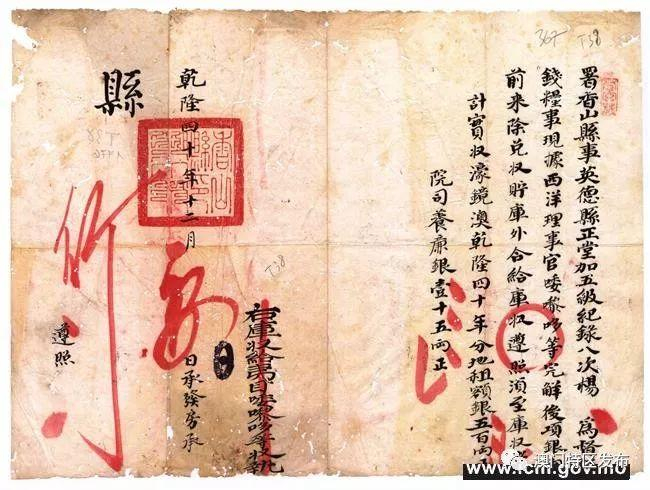 署香山縣事英德縣正堂加五級紀錄八次楊 為督
錢糧事現據西洋理事官喽嚟哆等完解後項銀
前來除兑收貯庫外合給庫收遵照須至庫收
計實收濠鏡澳乾隆四十年分地租額銀五百兩
院司養廉銀壹十五兩正
右庫收給夷目喽嚟哆等收執
乾隆四十年十二月 日承發房承
縣
遵照
367
T38
T38
www.icm.gov.mo
澳门特区发布